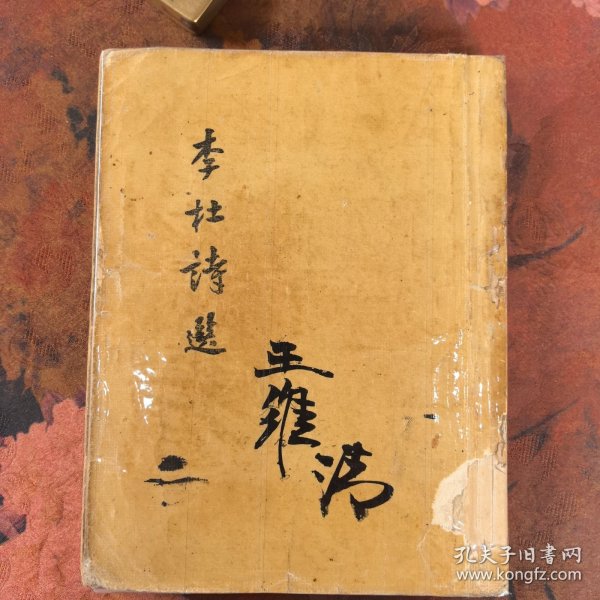 李杜詩選
王維清
二
孔夫子旧書网
www.kongfz.com